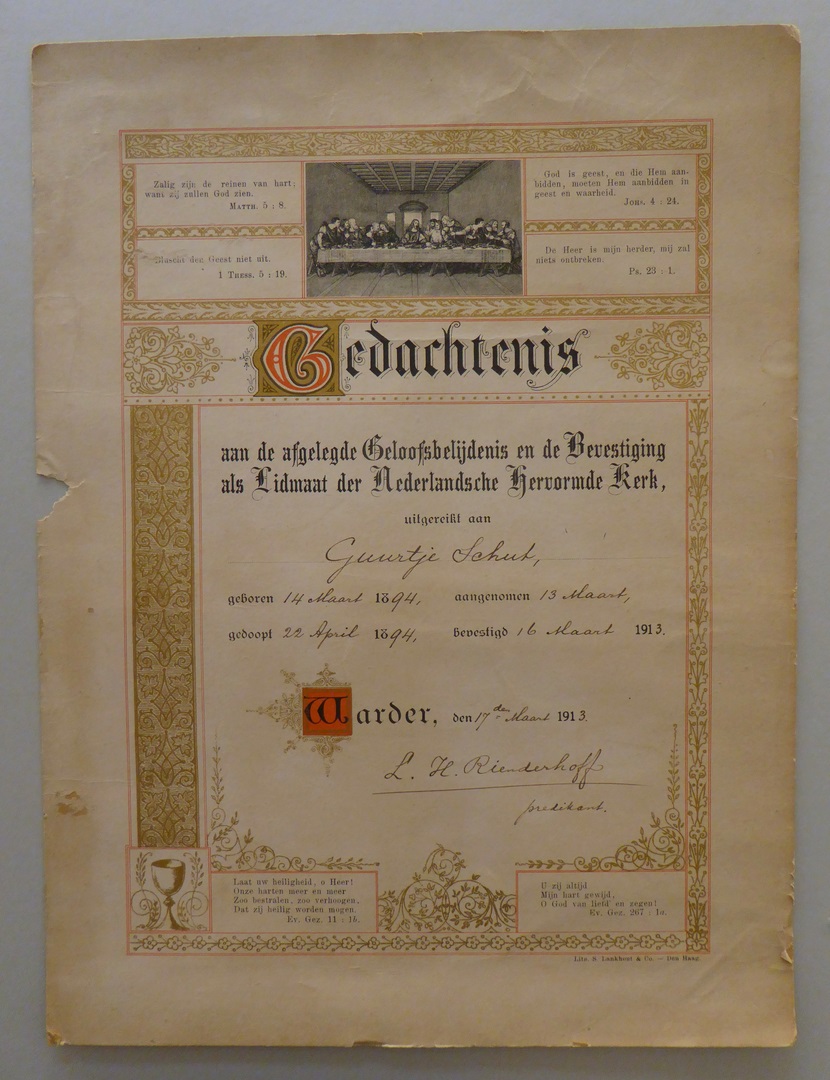 Zalig zijn de reinen van hart;
want zij zullen God zien.
MATTH. 5 : 8.
Bluscht den Geest niet uit.
1 THESS. 5 : 19.
God is geest, en die Hem aan-
bidden, moeten Hem aanbidden in
geest en waarheid.
JOHS. 4 : 24.
De Heer is mijn herder, mij zal
niets ontbreken.
Ps. 23 : 1.
Gedachtenis
aan de afgelegde Geloofsbelijdenis en de Bevestiging
als Lidmaat der Nederlandsche Hervormde Kerk,
uitgereikt aan
Guurtje Schut,
geboren 14 Maart 1894, aangenomen 13 Maart,
gedoopt 22 April 1894, bevestigd 16 Maart 1913.
Warder, den 17de Maart 1913.
L. H. Rienderhoff
predikant.
Laat uw heiligheid, o Heer!
Onze harten meer en meer
Zoo bestralen, zoo verhoogen,
Dat zij heilig worden mogen.
Ev. Gez. 11 : 15.
U zij altijd
Mijn hart gewijd,
O God van liefd' en zegen!
Ev. Gez. 267 : 1a.
Lith. S. Lankhout & Co. — Den Haag.